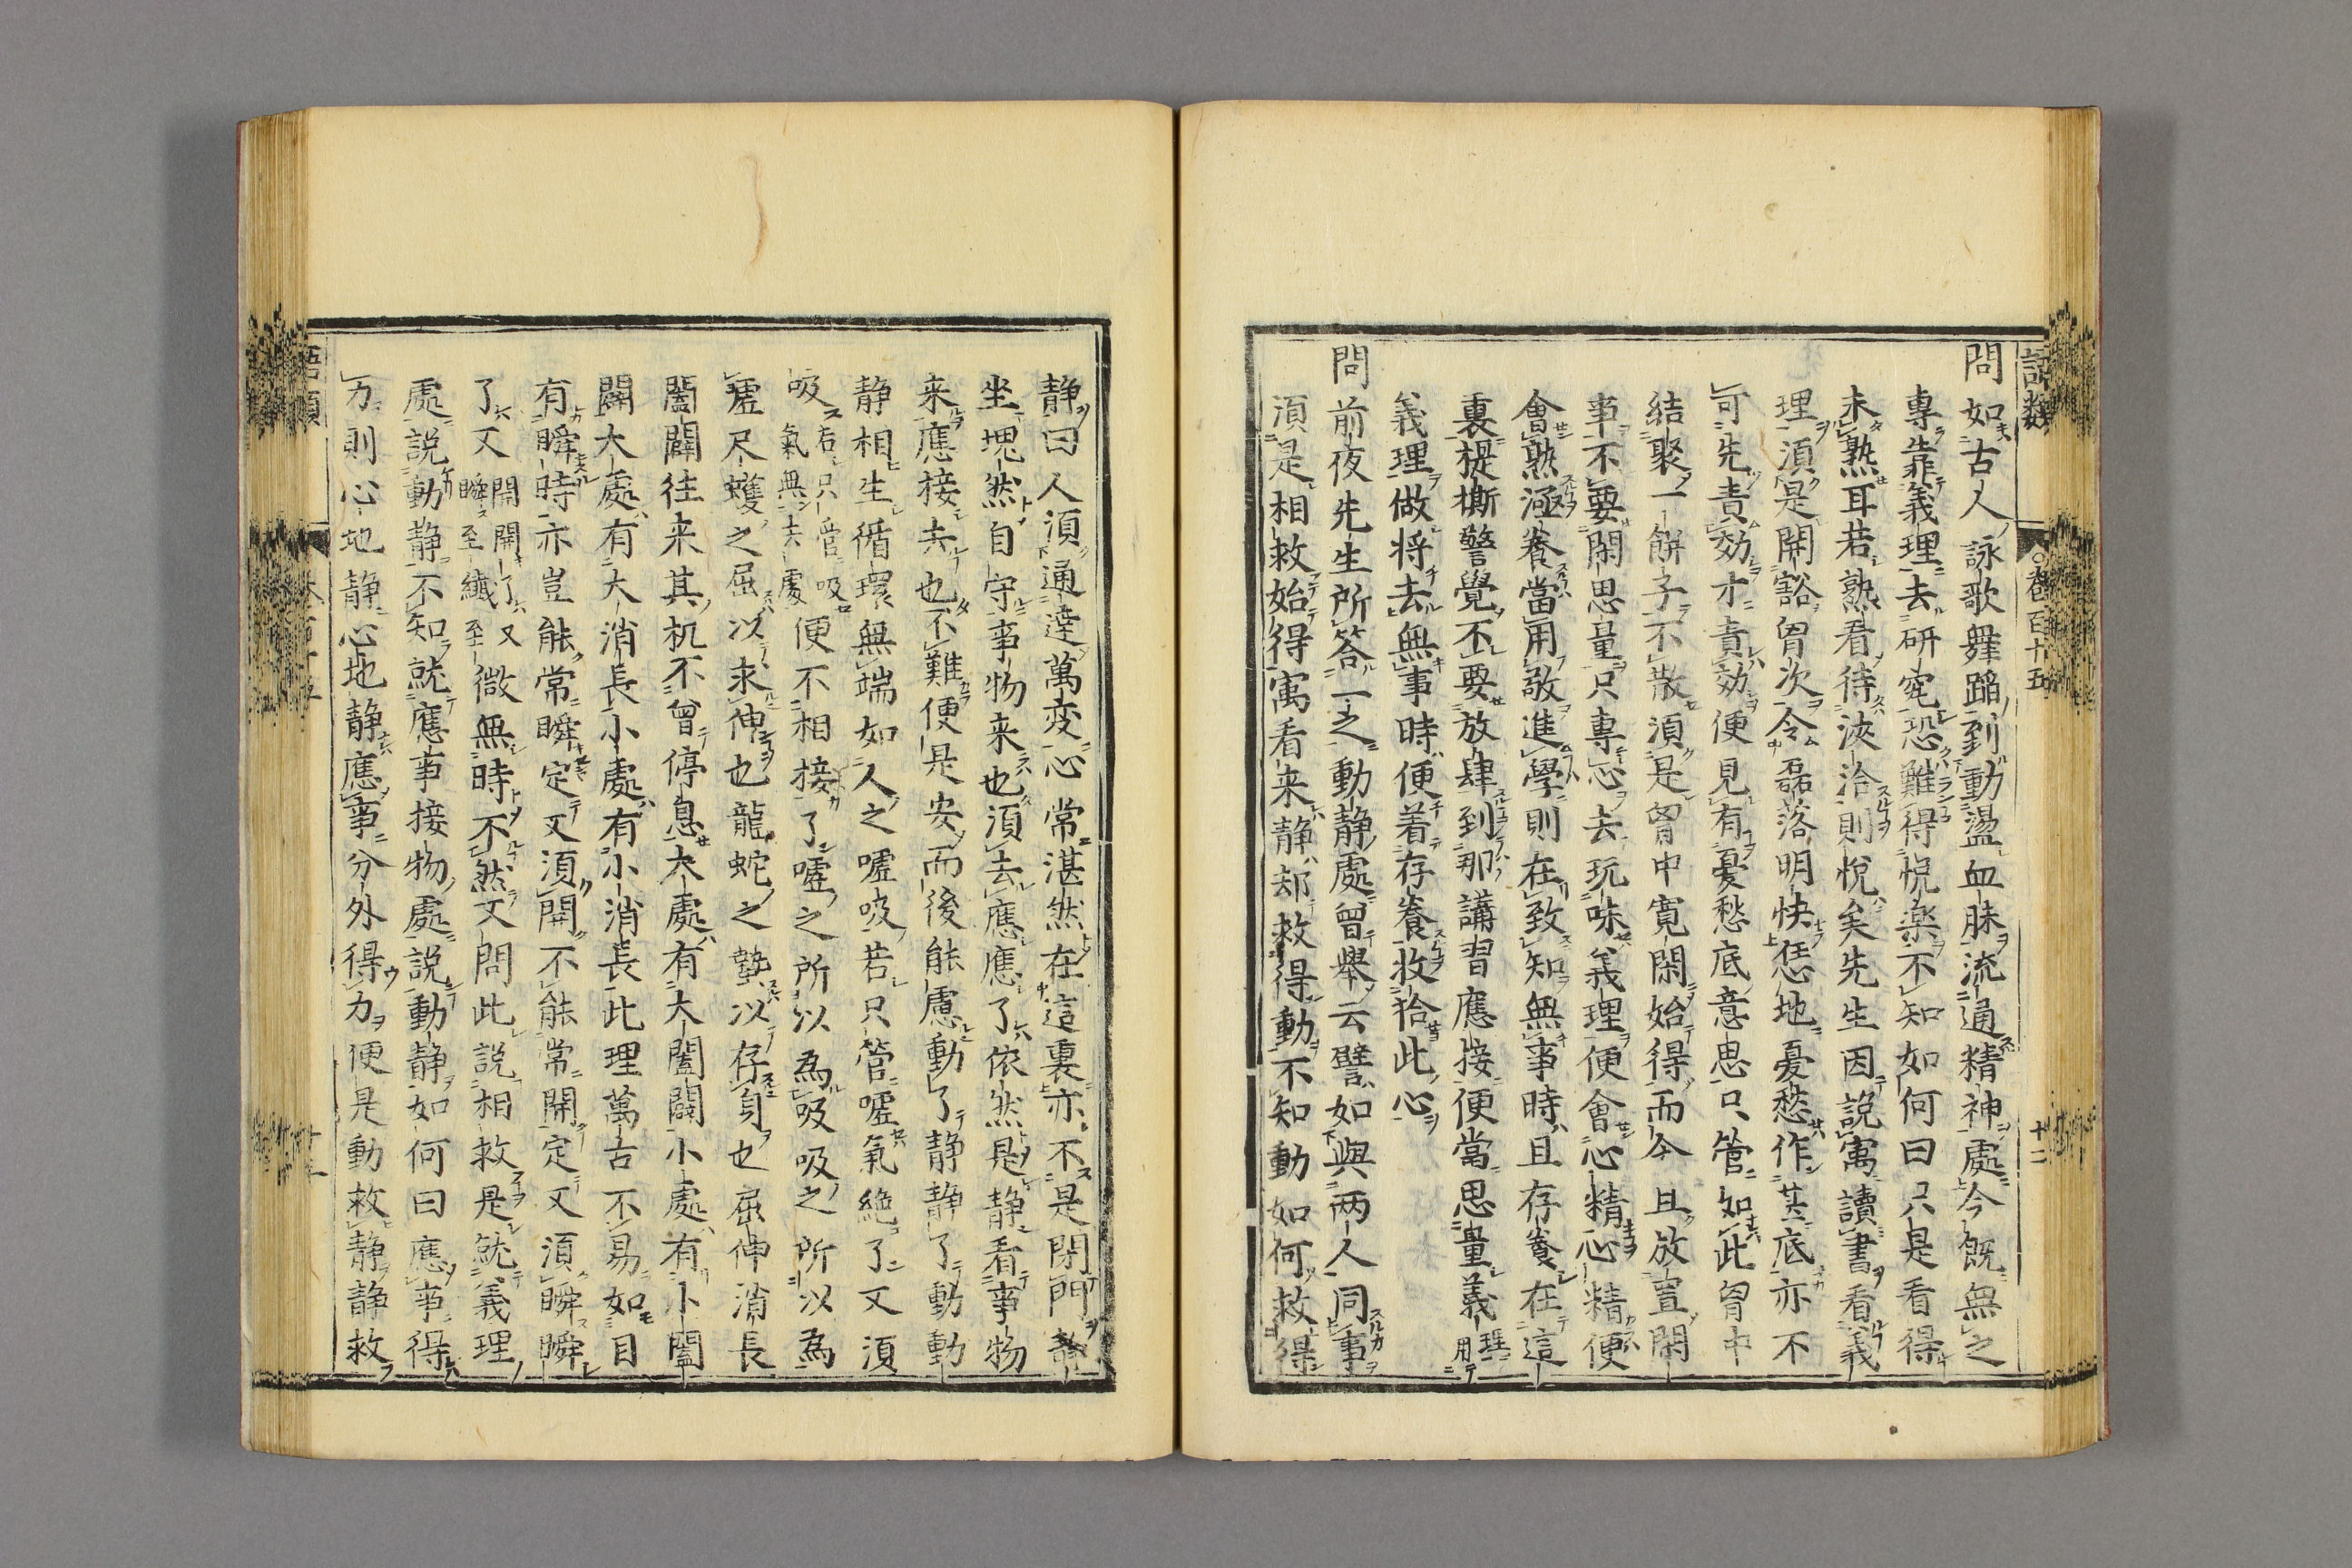 語類 ○卷百十五 十二
問如古人詠歌舞蹈到動盪血脉流通精神處今既無之
專靠義理去研究恐難得悅楽不知如何曰只是看得
未熟耳若熟看待浹洽則悅矣先生因說寓讀書看義
理須是開豁胷次令磊落明快恁地憂愁作甚底亦不
可先責効才責効便見有憂愁底意思只管如此胷中
結聚一餅子不散須是胷中寛閑始得而今且放置閑
事不要閑思量只專心去玩味義理便會心精心精便
會熟涵養當用敬進學則在致知無事時且存養在這
裏提撕警覺不要放肆到那講習應接便當思量義理用
義理做将去無事時便着存養收拾此心
問前夜先生所答一之動静處曽舉云譬如與两人同事
須是相救始得寓看来静却救得動不知動如何救得
静曰人須通達萬変心常湛然在這裏亦不是閉門静
坐塊然自守事物来也須去應應了依然是静看事物
来應接去也不難便是安而後能慮動了静静了動動
静相生循環無端如人之嘘吸若只管嘘氣絶了又須
吸若只管吸氣無去處便不相接了嘘之所以為吸吸之所以為
嘘尺蠖之屈以求伸也龍蛇之蟄以存身也屈伸消長
闔闢往来其机不曾停息大處有大闔闢小處有小闔
闢大處有大消長小處有小消長此理萬古不易如目
有瞬時亦豈能常瞬定又須開不能常開定又須瞬瞬
了又開開了又瞬至纎至微無時不然又問此說相救是就義理
處說動静不知就應事接物處說動静如何曰應事得
力則心地静心地静應事分外得力便是動救静静救